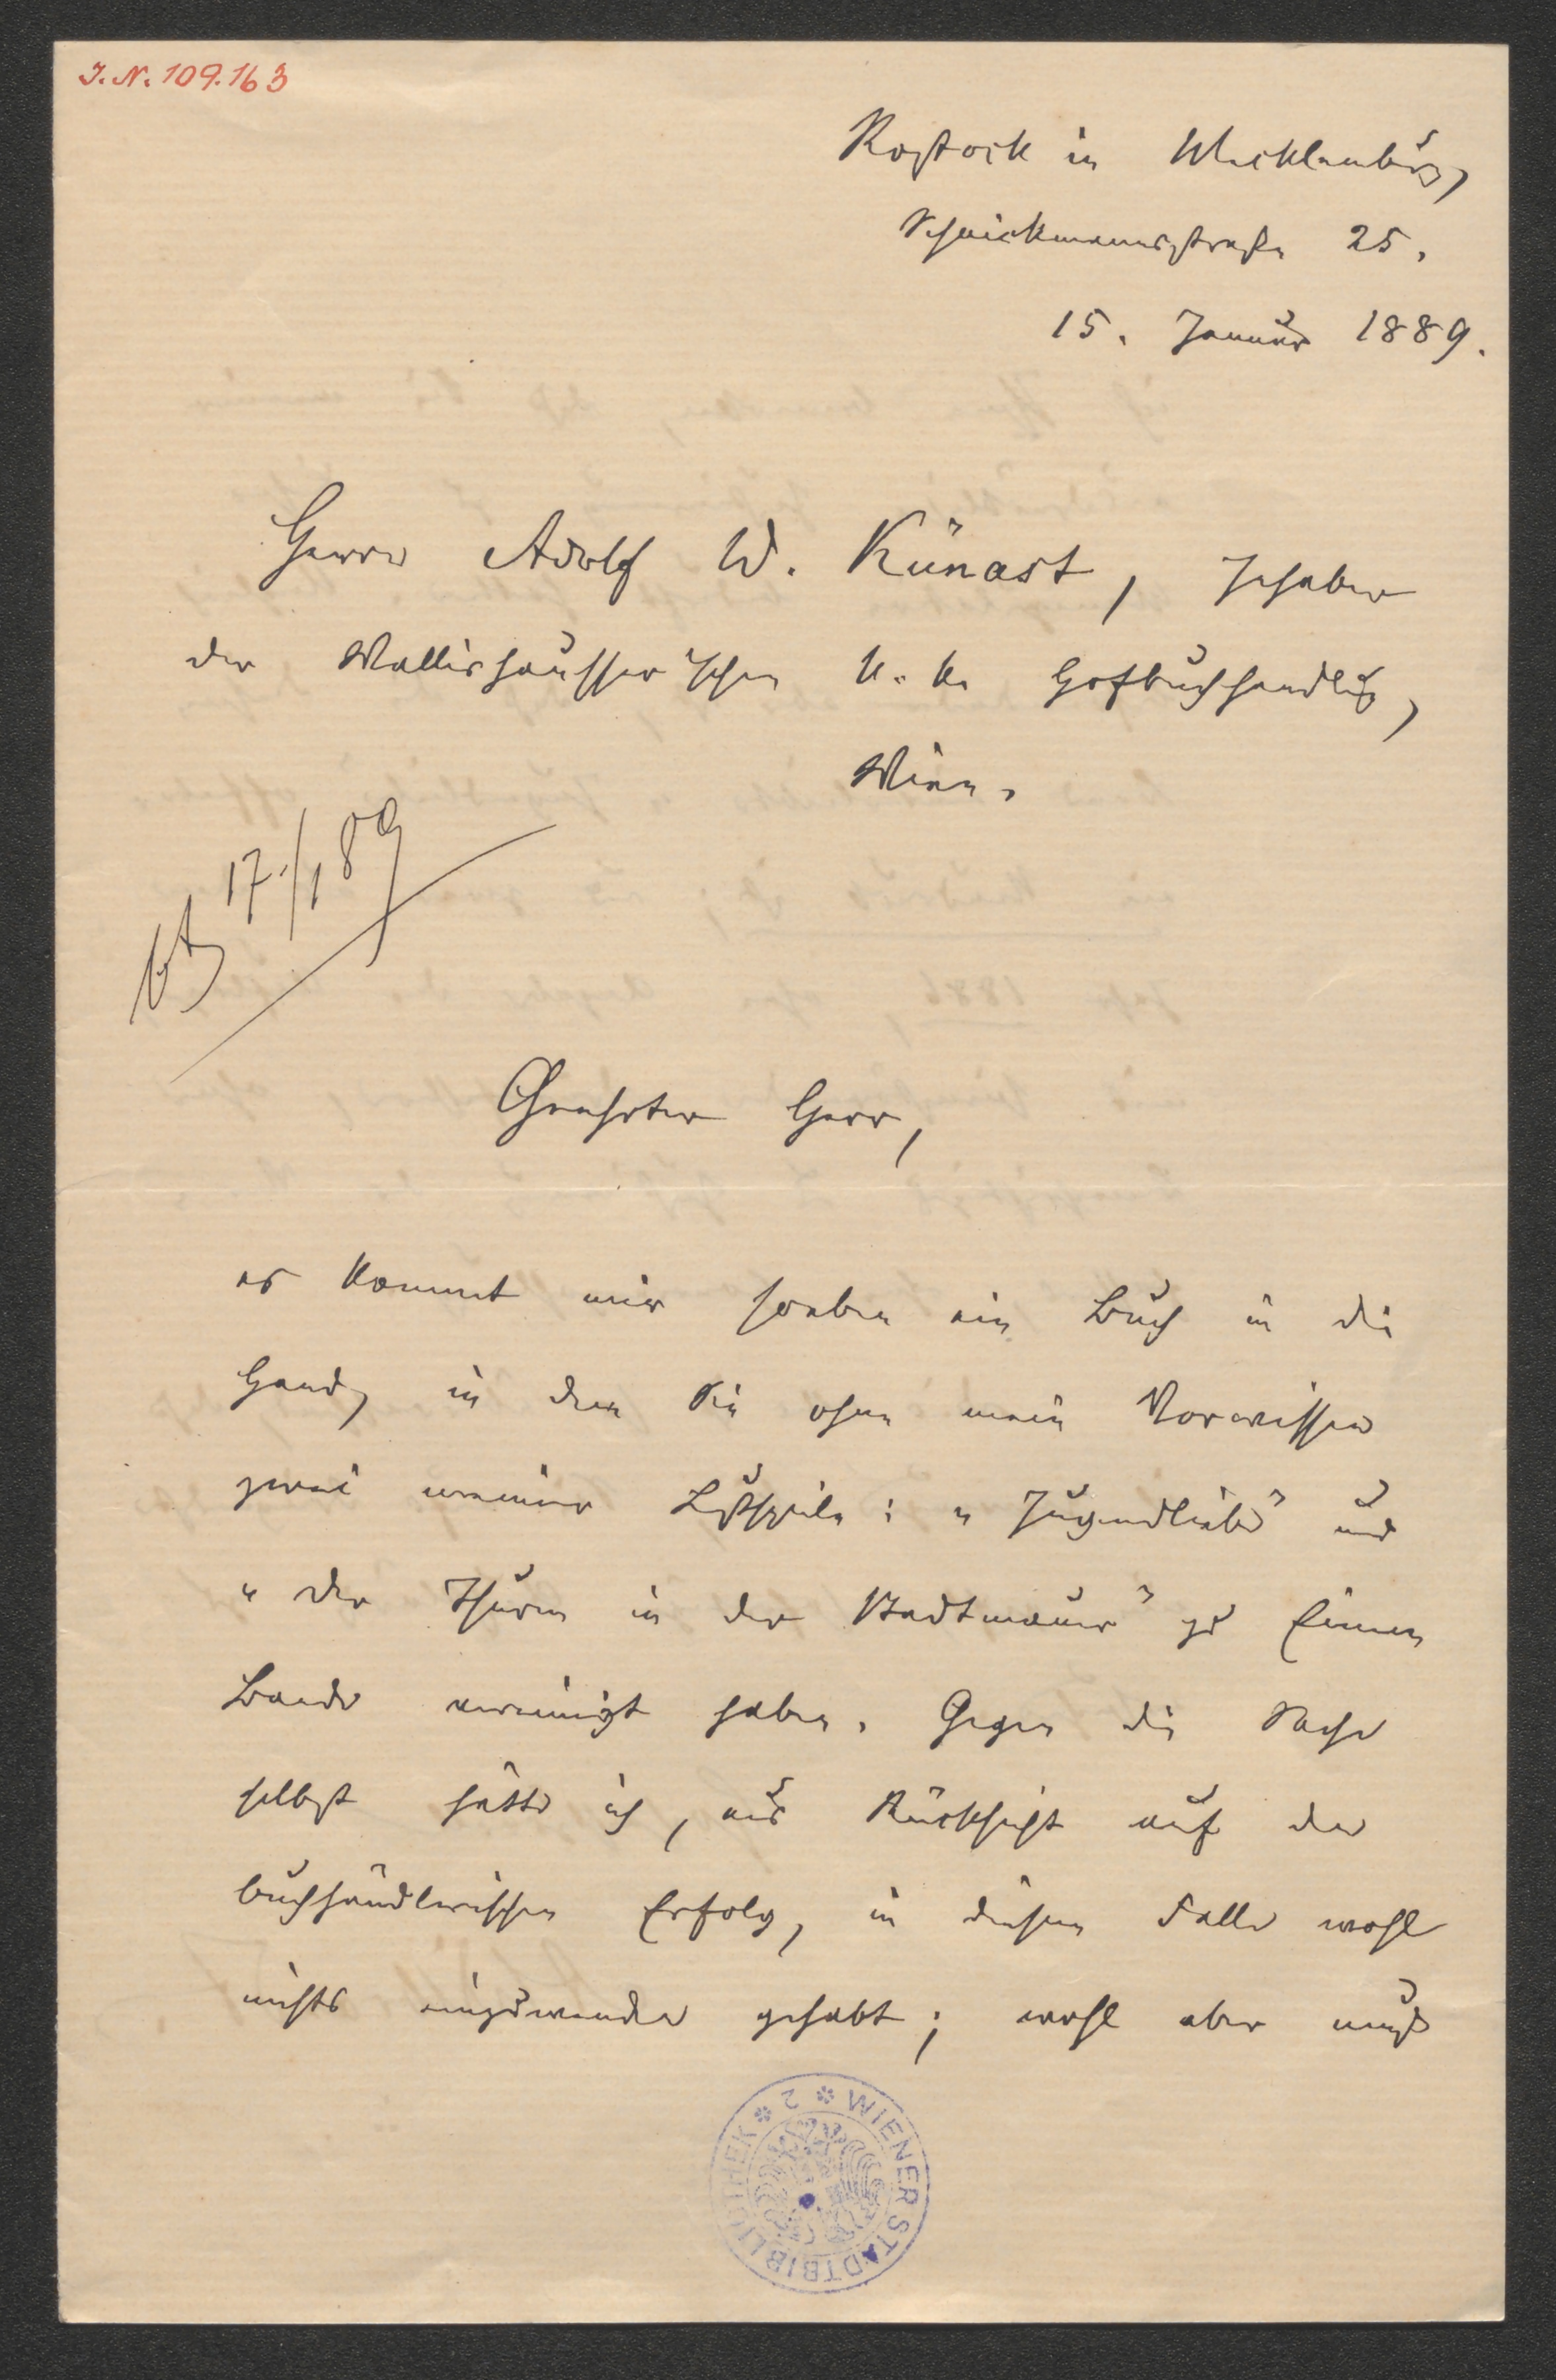 J. N. 109.163
Rostock in Mecklenburg,
Schwickmannstraße 25.
15. Januar 1889.
Herrn Adolf W. Künast, Inhaber
der Wallishausser'schen k. k. Hofbuchhandlung,
Wien.
17./1 89
Geehrter Herr,
es kommt mir soeben ein Buch in die
Hand, in dem Sie ohne mein Vorwissen
zwei meiner Lustspiele: „Jugendliebe" und
„der Thurm in der Stadtmauer" zu Einem
Bande vereinigt haben. Gegen die Sache
selbst hätte ich, aus Rücksicht auf den
buchhändlerischen Erfolg, in diesem Falle wohl
nichts einzuwenden gehabt; wohl aber muß
WIENER STADTBIBLIOTHEK * 2 *